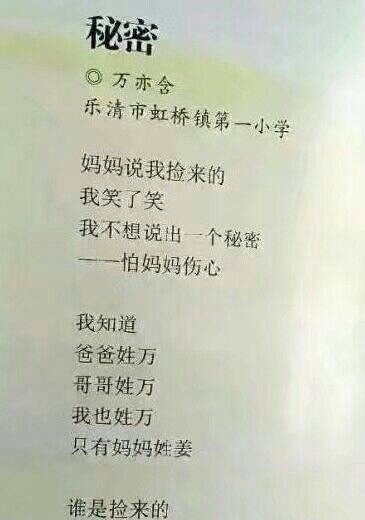 秘密
◎ 万亦含
乐清市虹桥镇第一小学
妈妈说我捡来的
我笑了笑
我不想说出一个秘密
——怕妈妈伤心
我知道
爸爸姓万
哥哥姓万
我也姓万
只有妈妈姓姜
谁是捡来的